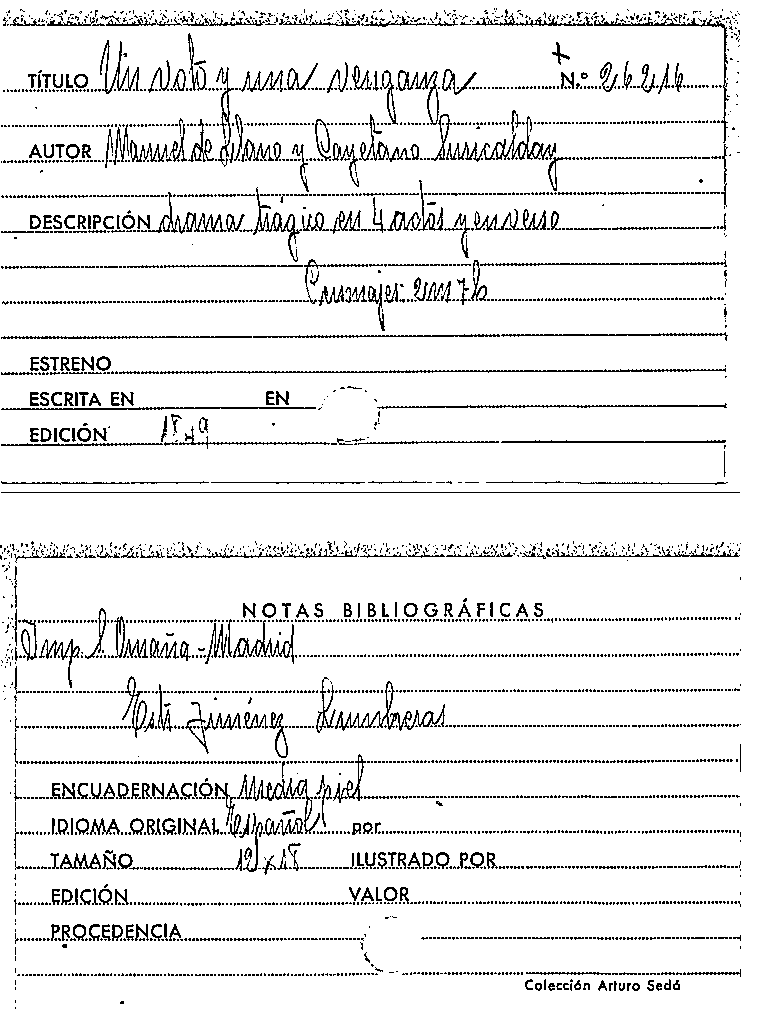 TÍTULO Un voto y una venganza N.º 26216
AUTOR Manuel de Llano y Cayetano Suricalday
DESCRIPCIÓN drama trágico en 4 actos y en verso
2m 7h
ESTRENO
ESCRITA EN EN
EDICIÓN 1849
NOTAS BIBLIOGRÁFICAS
Imp S. Omaña - Madrid
Jiménez Lumbreras
ENCUADERNACIÓN media piel
IDIOMA ORIGINAL Español por
TAMAÑO 12 x 18 ILUSTRADO POR
EDICIÓN VALOR
PROCEDENCIA
Colección Arturo Sedó